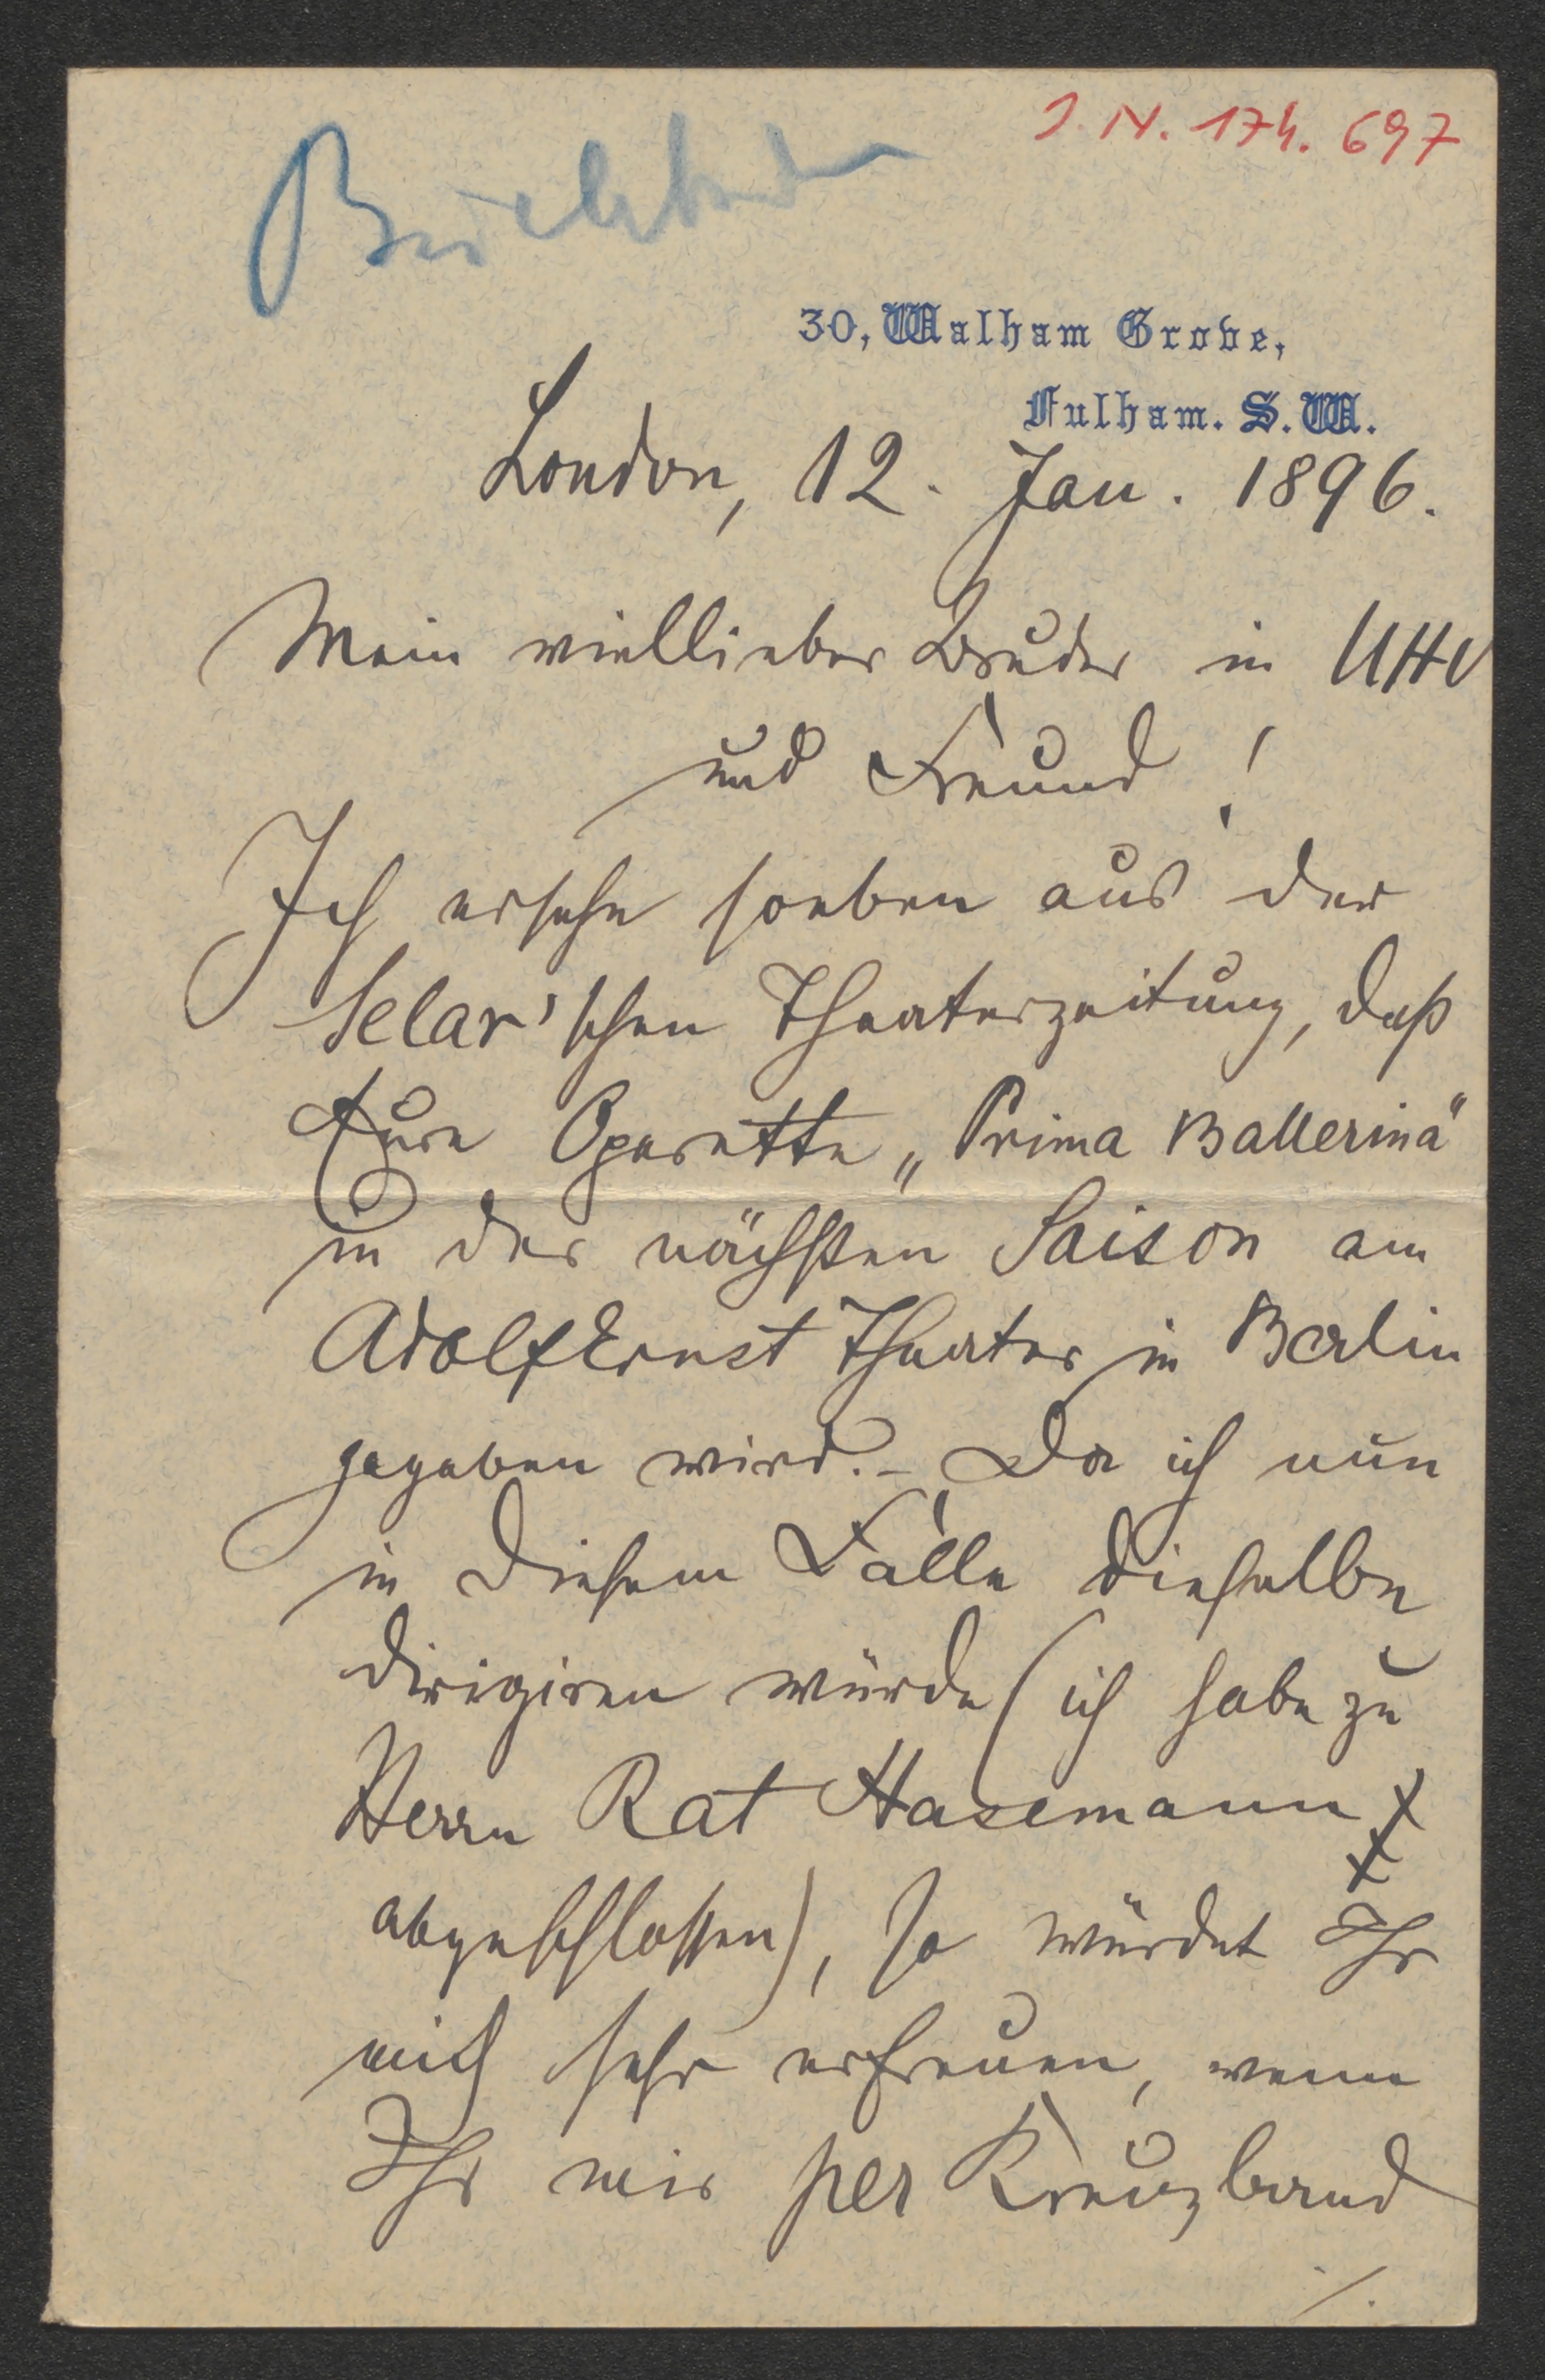 J. N. 174. 697
30, Walham Grove,
Fulham. S. W.
London, 12. Jan. 1896.
Mein viellieber Bruder in UHU
und Freund!
Ich ersehe soeben aus der
Selar'schen Theaterzeitung, daß
Eure Operette „Prima Ballerina“
in der nächsten Saison am
Adolf Ernst Theater in Berlin
gegeben wird. – Da ich nun
in diesem Falle dieselbe
dirigiren würde (ich habe zu
Herrn Rat Hasemann
abgeschlossen), so würdet Ihr
mich sehr erfreuen, wenn
Ihr mir per Kreuzband
./.